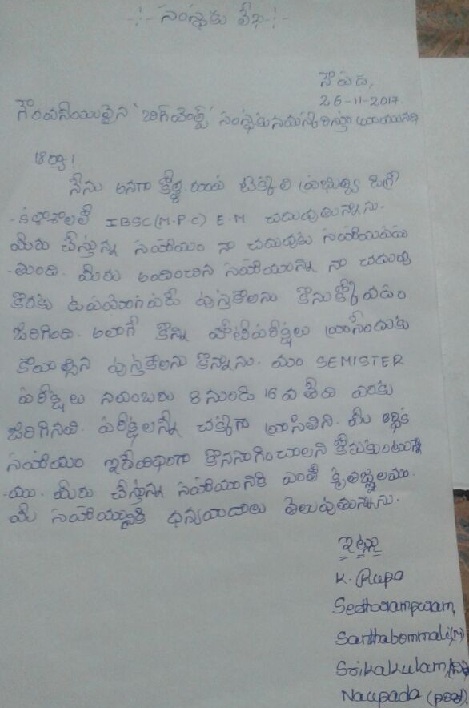 సంస్థకు లేఖ
నౌపడ,
26-11-2017
గౌరవనీయులైన సంస్థకు నమస్కరిస్తూ వ్రాయునది
ఆర్యా!
నేను అనగా రూప టెక్కలి ప్రభుత్వ డిగ్రీ
కళాశాలలో IBSC(M.P.C) E.M చదువుతున్నాను.
మీరు చేస్తున్న సహాయం నా చదువుకు సహాయపడు
-తుంది. మీరు అందించిన సహాయాన్ని నా చదువు
కొరకు ఉపయోగపడే పుస్తకాలను కొనుక్కోవడం
జరిగింది. అలాగే కొన్ని పోటీపరీక్షలు వ్రాసేందుకు
కావాల్సిన పుస్తకాలను కొన్నాను. మా SEMISTER
పరీక్షలు నవంబరు 8 నుండి 16 వ తేది వరకు
జరిగినవి. పరీక్షలన్నీ చక్కగా వ్రాసితిని. మీ ఆర్థిక
సహాయం ఇదేవిధంగా కొనసాగించాలని కోరుకుంటున్నా
-ను. మీరు చేస్తున్న సహాయానికి ఎంతో కృతజ్ఞులము.
మీ సహాయానికి ధన్యవాదాలు తెలుపుతున్నాను.
ఇట్లు
K. Rupa
Seetharampuram,
Santhabommali,(M)
Srikakulam,
Naupada (post).